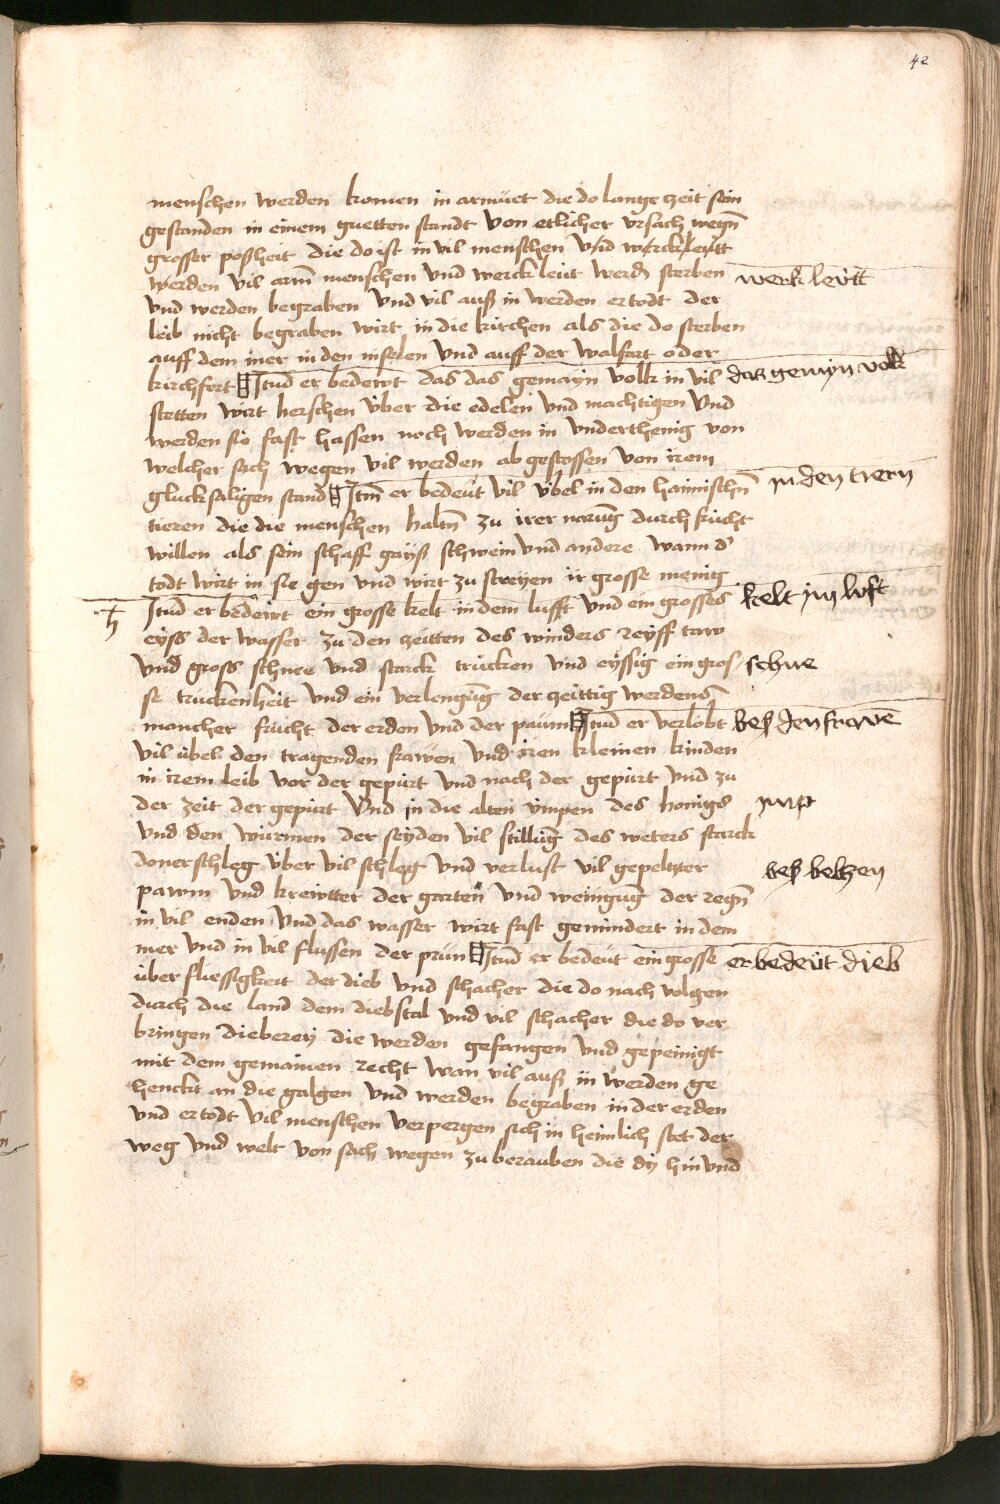 42
menschen werden komen in armüet die do lange zeit sein
gestanden in einem guetten standt von etlicher vrsach wegn̄
grosser poßheit die do ist in vil menschen vnd werckleütt
werden vil arm̄ menschen vnd werckleut werdn̄ sterben
werkleütt
vnd werden begraben vnd vil auß in werden ertodt der
leib nicht begraben wirt in die kirchen als die do sterben
auff dem mer in den inselen vnd auff der walfart oder
kirchfert Itm̄ er bedewt das das gemayn volk in vil
daz gemyn volk
stetten wirt herschen vber die edelen vnd machtigen vnd
werden sie fast hassen noch werden in vnderthenig von
welcher sach wegen vil werden abgestossen von irem
glucksaligen stand Itm̄ er bedeut vil vbel in den haimischn̄
in den tiern
tieren die die menschen haltn̄ zu irer narūg durch frücht
willen als sein schaff gayß schwein vnd andere wann d'
todt wirt in sie gen vnd wirt zu strewen ir grosse menig
Itm̄ er bedewt ein grosse kelt in dem lufft vnd ein grosses
kelt im luft
eyss der wasser zu den zeitten des winders reyff taw
vnd gross schnee vnd starck trucken vnd eyssig ein gros
schne
se truckenheit vnd ein verlengūg der zeittig werdens
mancher frücht der erden vnd der paum Itm̄ er verlobt
bes den frawē
vil ubel den tragenden frawen vnd iren kleinen kinden
in irem leib vor der gepürt vnd nach der gepürt vnd zu
der zeit der gepürt vnd in die alten ympen des honigs
imp
vnd den würmen der seyden vil stillūg des weters starck
donerschleg über vil schleg vnd verlust vil gepeltzter
bes beltzen
pawm vnd krewtter der garten vnd wenigūg der regn̄
in vil enden vnd das wasser wirt fast gemindert in dem
mer vnd in vil flussen der prün Itm̄ er bedeut ein grosse
er bedeüt dieb
über fliessigkeit der dieb vnd schacher die do nach volgen
durch die land dem diebstal vnd vil schacher die do ver
bringen dieberey die werden gefangen vnd gepeinigt
mit dem gemainen recht wan vil auß in werden ge
henckt an die galgen vnd werden begraben in der erden
vnd ertodt vil menschen verpergen sich in heimlich stet der
weg vnd welt von sach wegen zu berauben die dy hin vnd